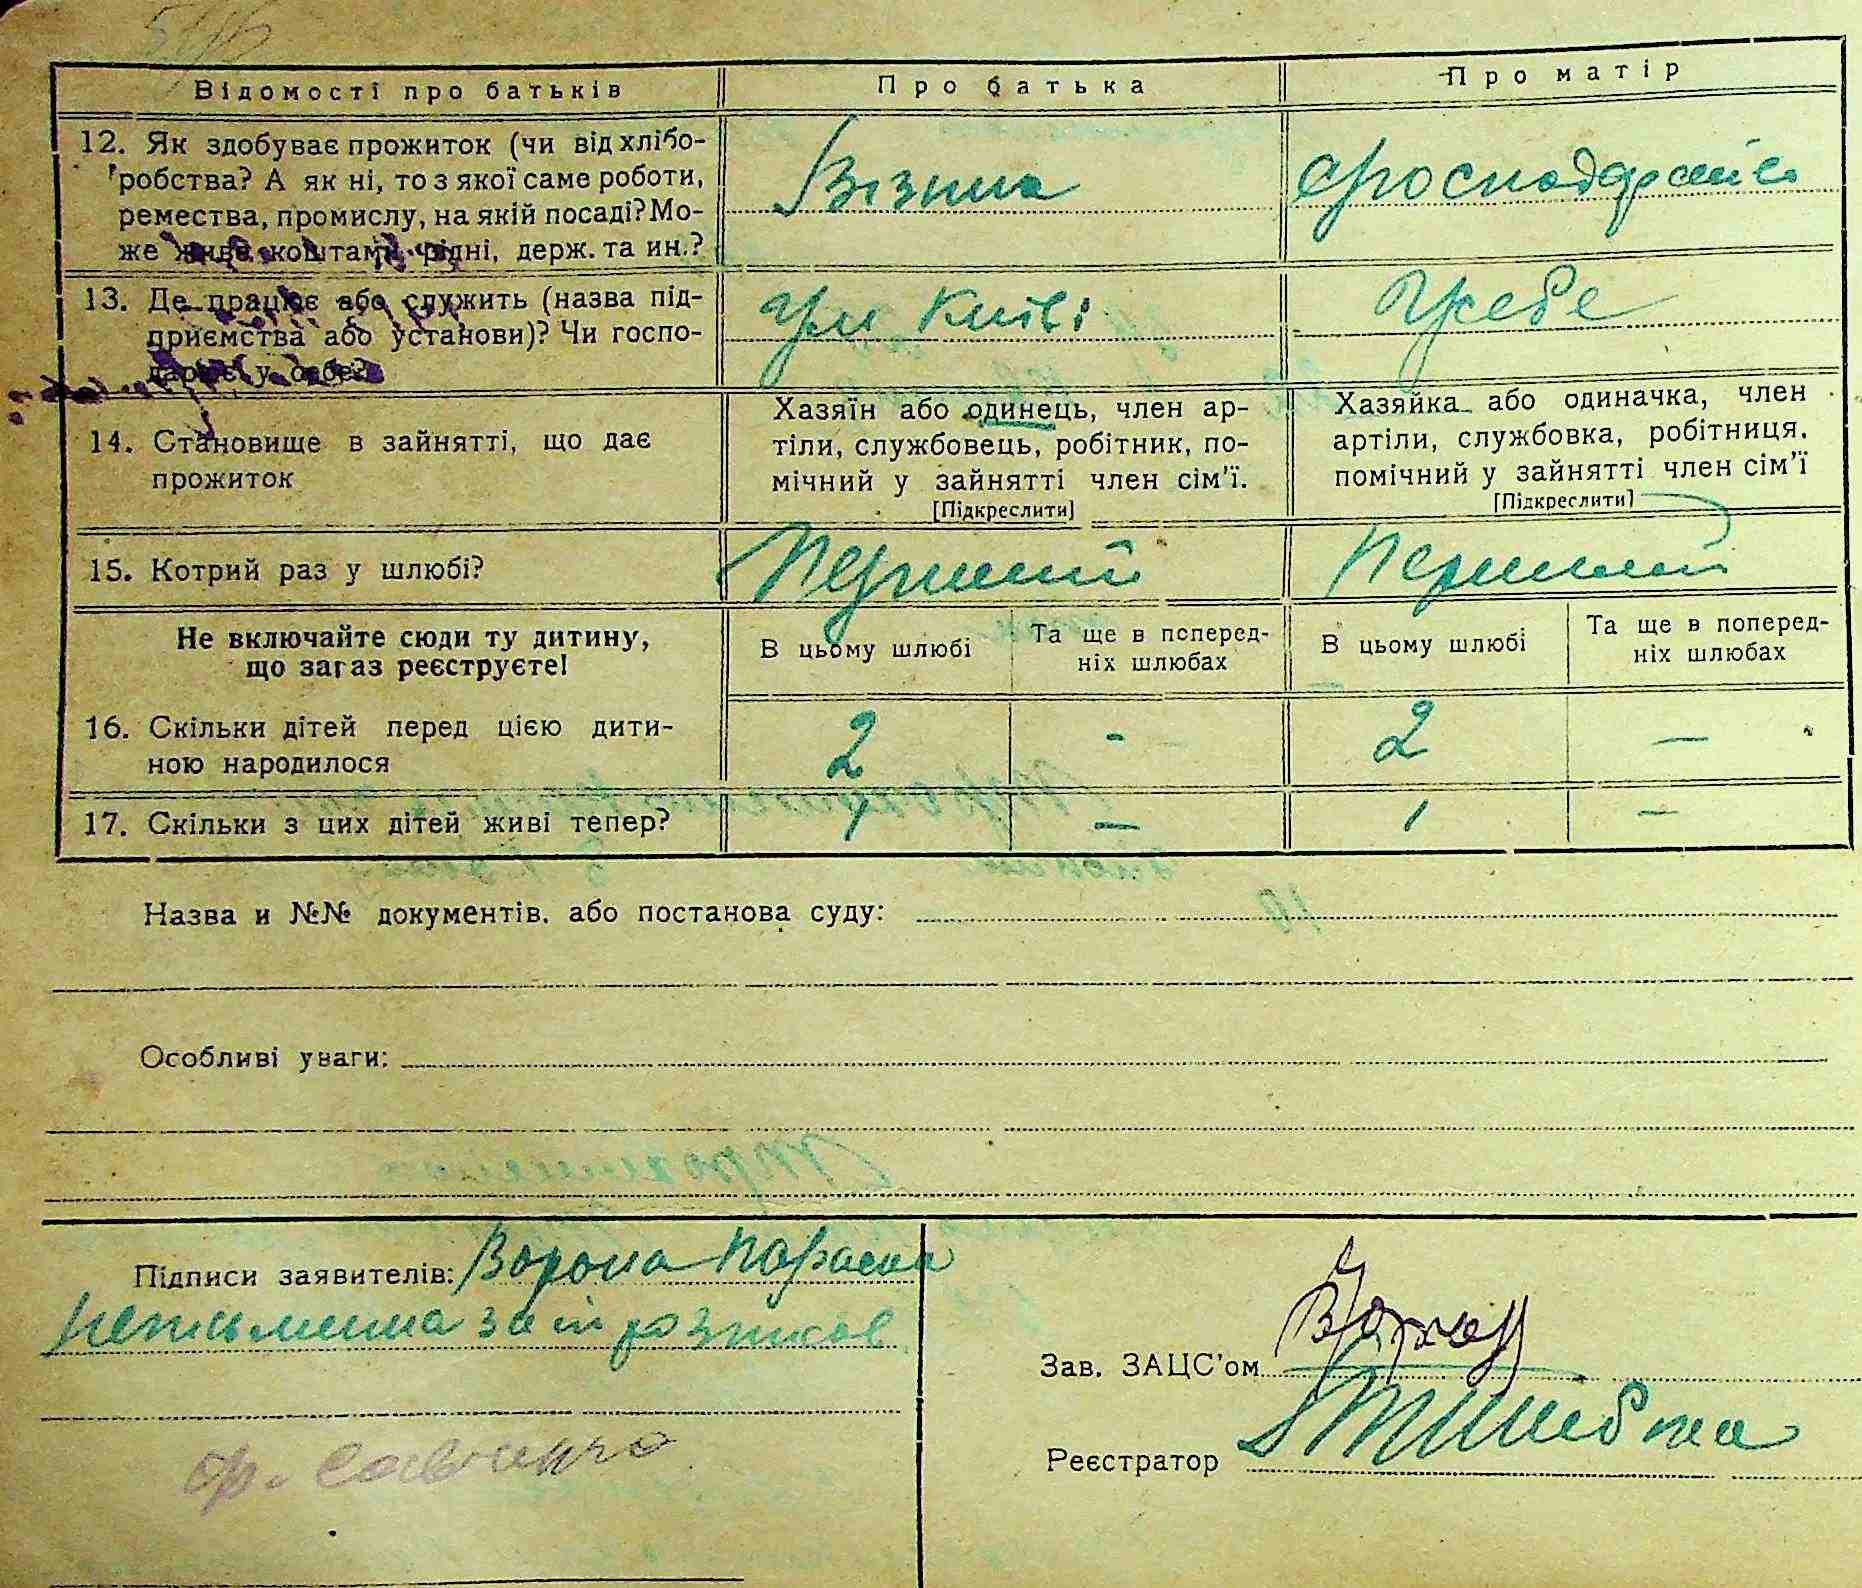 Відомості про батьків
Про батька
Про матір
12. Як здобуває прожиток (чи від хлібо-
робства? А як ні, то з якої саме роботи,
ремества, промислу, на якій посаді? Мо-
же живе коштами рідні, держ. та ин.?
Візник
13. Де працює або служить (назва під-
приємства або установи)? Чи госпо-
дарює у себе?
при Київі
У себе
14. Становище в зайнятті, що дає
прожиток
Хазяїн або одинець, член ар-
тіли, службовець, робітник, по-
мічний у зайнятті член сім'ї.
[Підкреслити]
Хазяйка або одиначка, член
артіли, службовка, робітниця,
помічний у зайнятті член сім'ї
[Підкреслити]
15. Котрий раз у шлюбі?
Перший
Перший
Не включайте сюди ту дитину,
що зараз реєструєте!
В цьому шлюбі
Та ще в поперед-
ніх шлюбах
В цьому шлюбі
Та ще в поперед-
ніх шлюбах
16. Скільки дітей перед цією дити-
ною народилося
2
-
2
—
17. Скільки з цих дітей живі тепер?
1
—
1
—
Назва и №№ документів. або постанова суду:
Особливі уваги:
Підписи заявителів: Ворона Параска
неписьменна за неї розписав
Гр. Савченко
Зав. ЗАЦС'ом
Реєстратор